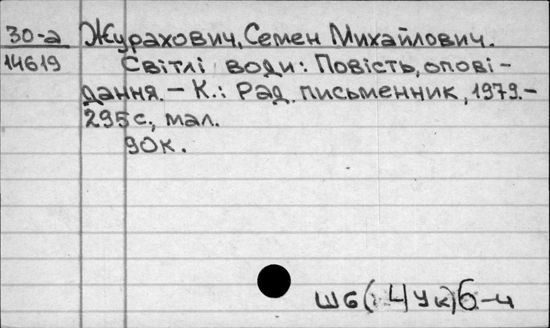 30-а Журахович, Семен Михайлович.
14619 Світлі води: Повість, опові-
дання. – К.: Рад. письменник, 1979.–
295с., мал.
90к.
Ш6(4Ук)6-4